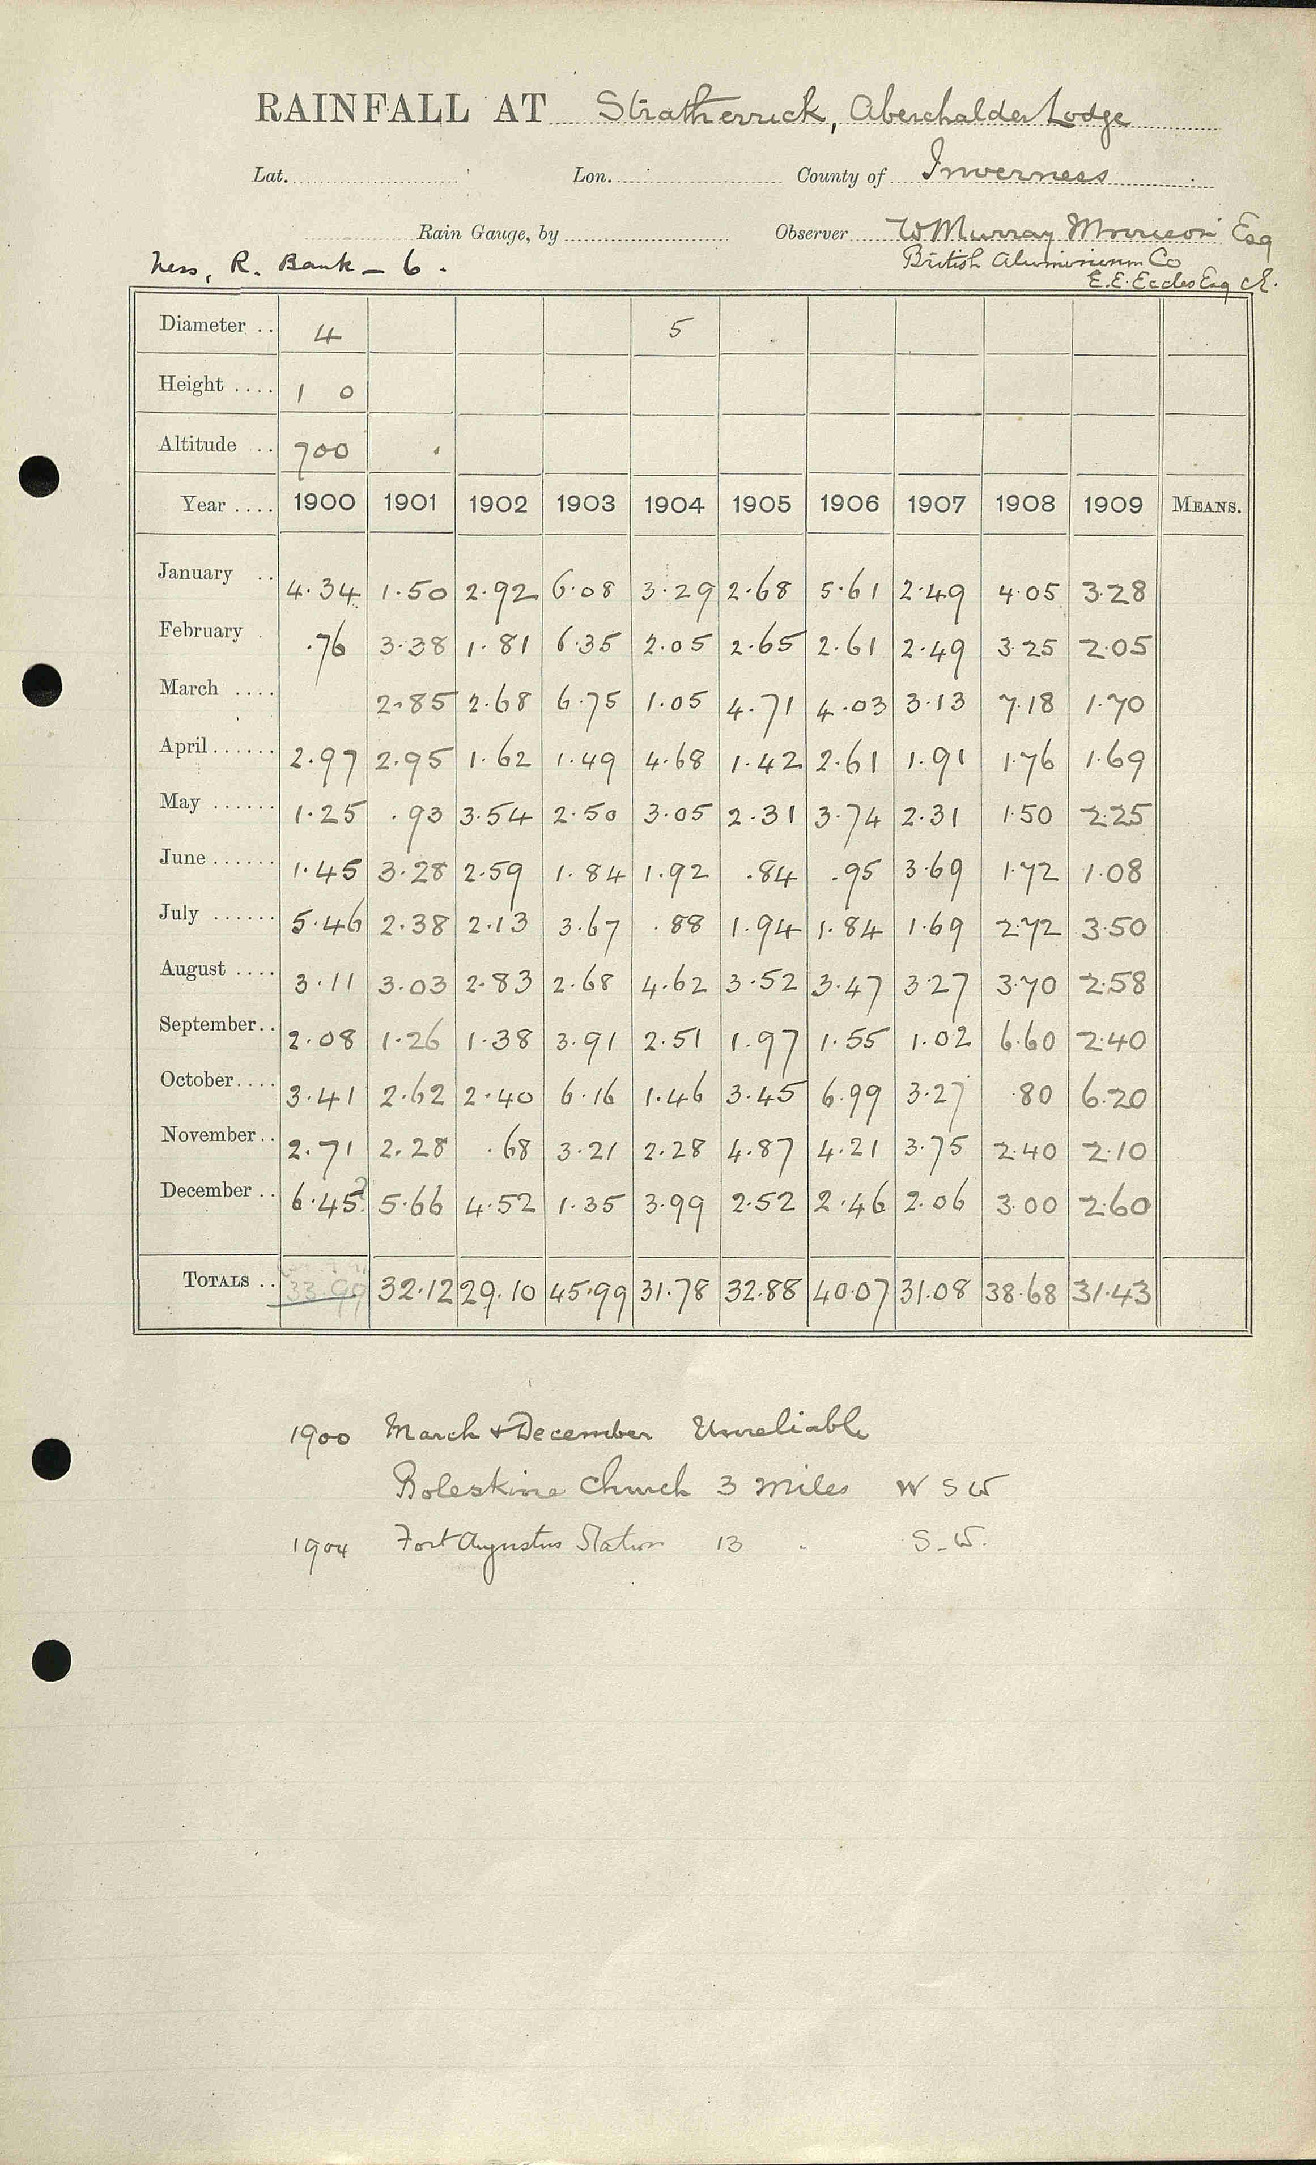 RAINFALL AT Stratherrick, Aberchalder Lodge
Lat. Lon. County of Inverness
Rain Gauge, by Observer W Murray Morrison Esq
Ness, R. Bank – 6. British Aluminium Co
E.E. Eccles Esq CE.
Diameter .. 4 5
Height .... 1 0
Altitude ... 700
Year .... 1900 1901 1902 1903 1904 1905 1906 1907 1908 1909 MEANS.
January .. 4.34 1.50 2.92 6.08 3.29 2.68 5.61 2.49 4.05 3.28
February . .76 3.38 1.81 6.35 2.05 2.65 2.61 2.49 3.25 2.05
March .... 2.85 2.68 6.75 1.05 4.71 4.03 3.13 7.18 1.70
April...... 2.97 2.95 1.62 1.49 4.68 1.42 2.61 1.91 1.76 1.69
May ...... 1.25 .93 3.54 2.50 3.05 2.31 3.74 2.31 1.50 2.25
June...... 1.45 3.28 2.59 1.84 1.92 .84 .95 3.69 1.72 1.08
July ...... 5.46 2.38 2.13 3.67 .88 1.94 1.84 1.69 2.72 3.50
August .... 3.11 3.03 2.83 2.68 4.62 3.52 3.47 3.27 3.70 2.58
September.. 2.08 1.26 1.38 3.91 2.51 1.97 1.55 1.02 6.60 2.40
October.... 3.41 2.62 2.40 6.16 1.46 3.45 6.99 3.27 .80 6.20
November.. 2.71 2.28 .68 3.21 2.28 4.87 4.21 3.75 2.40 2.10
December .. 6.45? 5.66 4.52 1.35 3.99 2.52 2.46 2.06 3.00 2.60
TOTALS .. 33.99 32.12 29.10 45.99 31.78 32.88 40.07 31.08 38.68 31.43
1900 March & December Unreliable
Boleskine Church 3 miles W S W
1904 Fort Augustus Station 13 " S. W.